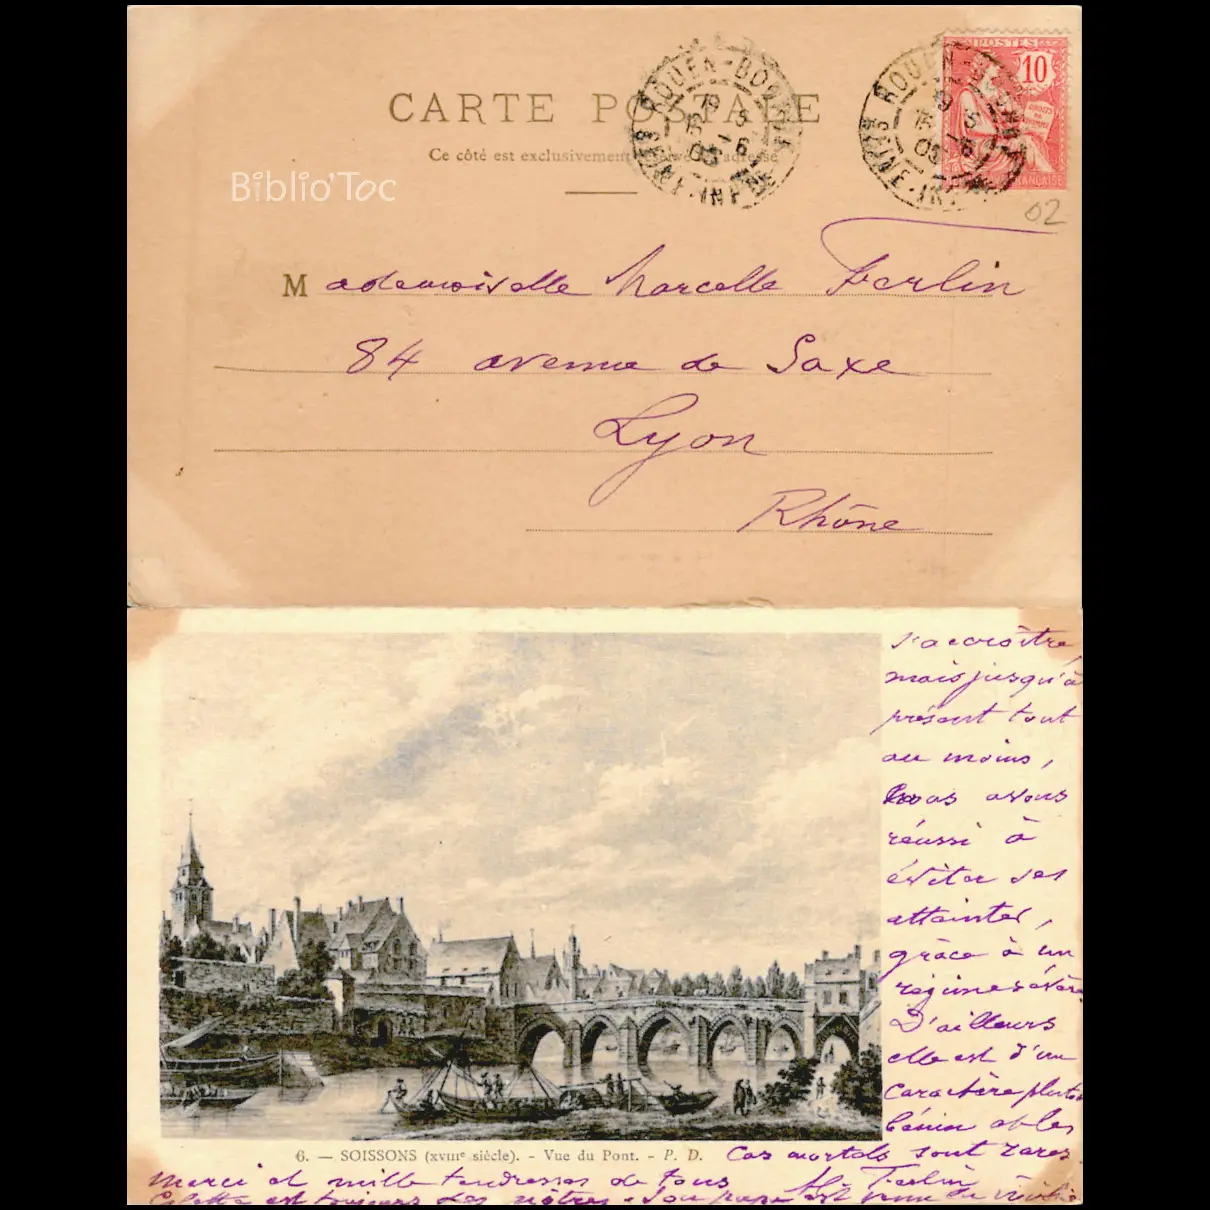 CARTE POSTALE
Ce côté est exclusivement réservé à l'adresse
Biblio'Toc
ROUEN-BOURSE
SEINE-INFRE
ROUEN
SEINE-INFRE
POSTES
10
DROITS DE L'HOMME
FRANÇAISE
02
Mademoiselle Marcelle Ferlin
84 avenue de Saxe
Lyon
Rhône
s'accroître,
mais jusqu'à
présent tout
au moins,
nous avons
réussi à
éviter ses
atteintes,
grâce à un
régime sévère
D'ailleurs
elle est d'un
caractère plutôt
bénin et les
6. — SOISSONS (XVIIIe siècle). - Vue du Pont. - P. D.
Cas mortels sont rares
Merci et mille tendresses de tous
Ferlin
est toujours des nôtres. Son papa est venu